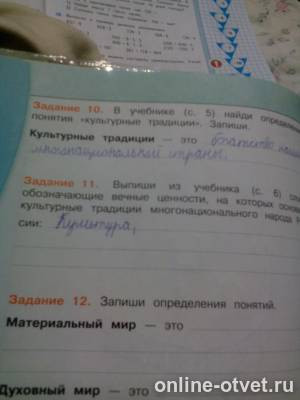 Задание 10. В учебнике (с. 5) найди
понятия «культурные традиции». Запиши.
Культурные традиции — это богатство
многонациональной страны.
Задание 11. Выпиши из учебника (с. 6)
обозначающие вечные ценности, на которых
культурные традиции многонационального народа
сии: Культура,
Задание 12. Запиши определения понятий.
Материальный мир — это
Духовный мир — это
online-otvet.ru